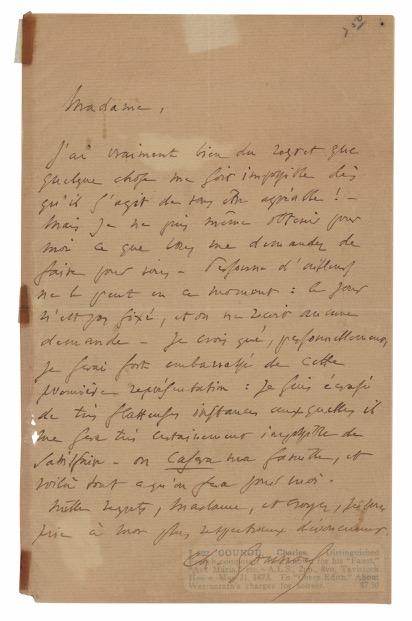 7 50
Madame,
J'ai vraiment bien du regret que
quelque chose me soit impossible dès
qu'il s'agit de vous être agréable ! -
Mais je ne puis même obtenir pour
moi ce que vous me demandez de
faire pour vous - Personne d'ailleurs
ne le peut en ce moment : le jour
n'est pas fixé, et on ne reçoit aucune
demande - Je crois que, personnellement,
je serai fort embarrassé de cette
première représentation : je suis écrasé
de très flatteuses instances auxquelles il
me sera très certainement impossible de
satisfaire - on casera ma famille, et
voilà tout ce qu'on fera pour moi.
Mille regrets, Madame, et croyez, je vous
prie à mon plus respectueux dévouement.
Ch. Gounod
GOUNOD, Charles. Distinguished
French composer, for his "Faust,"
"Ave Maria," etc. A.L.S., 2pp., 8vo, Tavistock
House, May 21, 1873. To "Chere Edith," About
$7.50